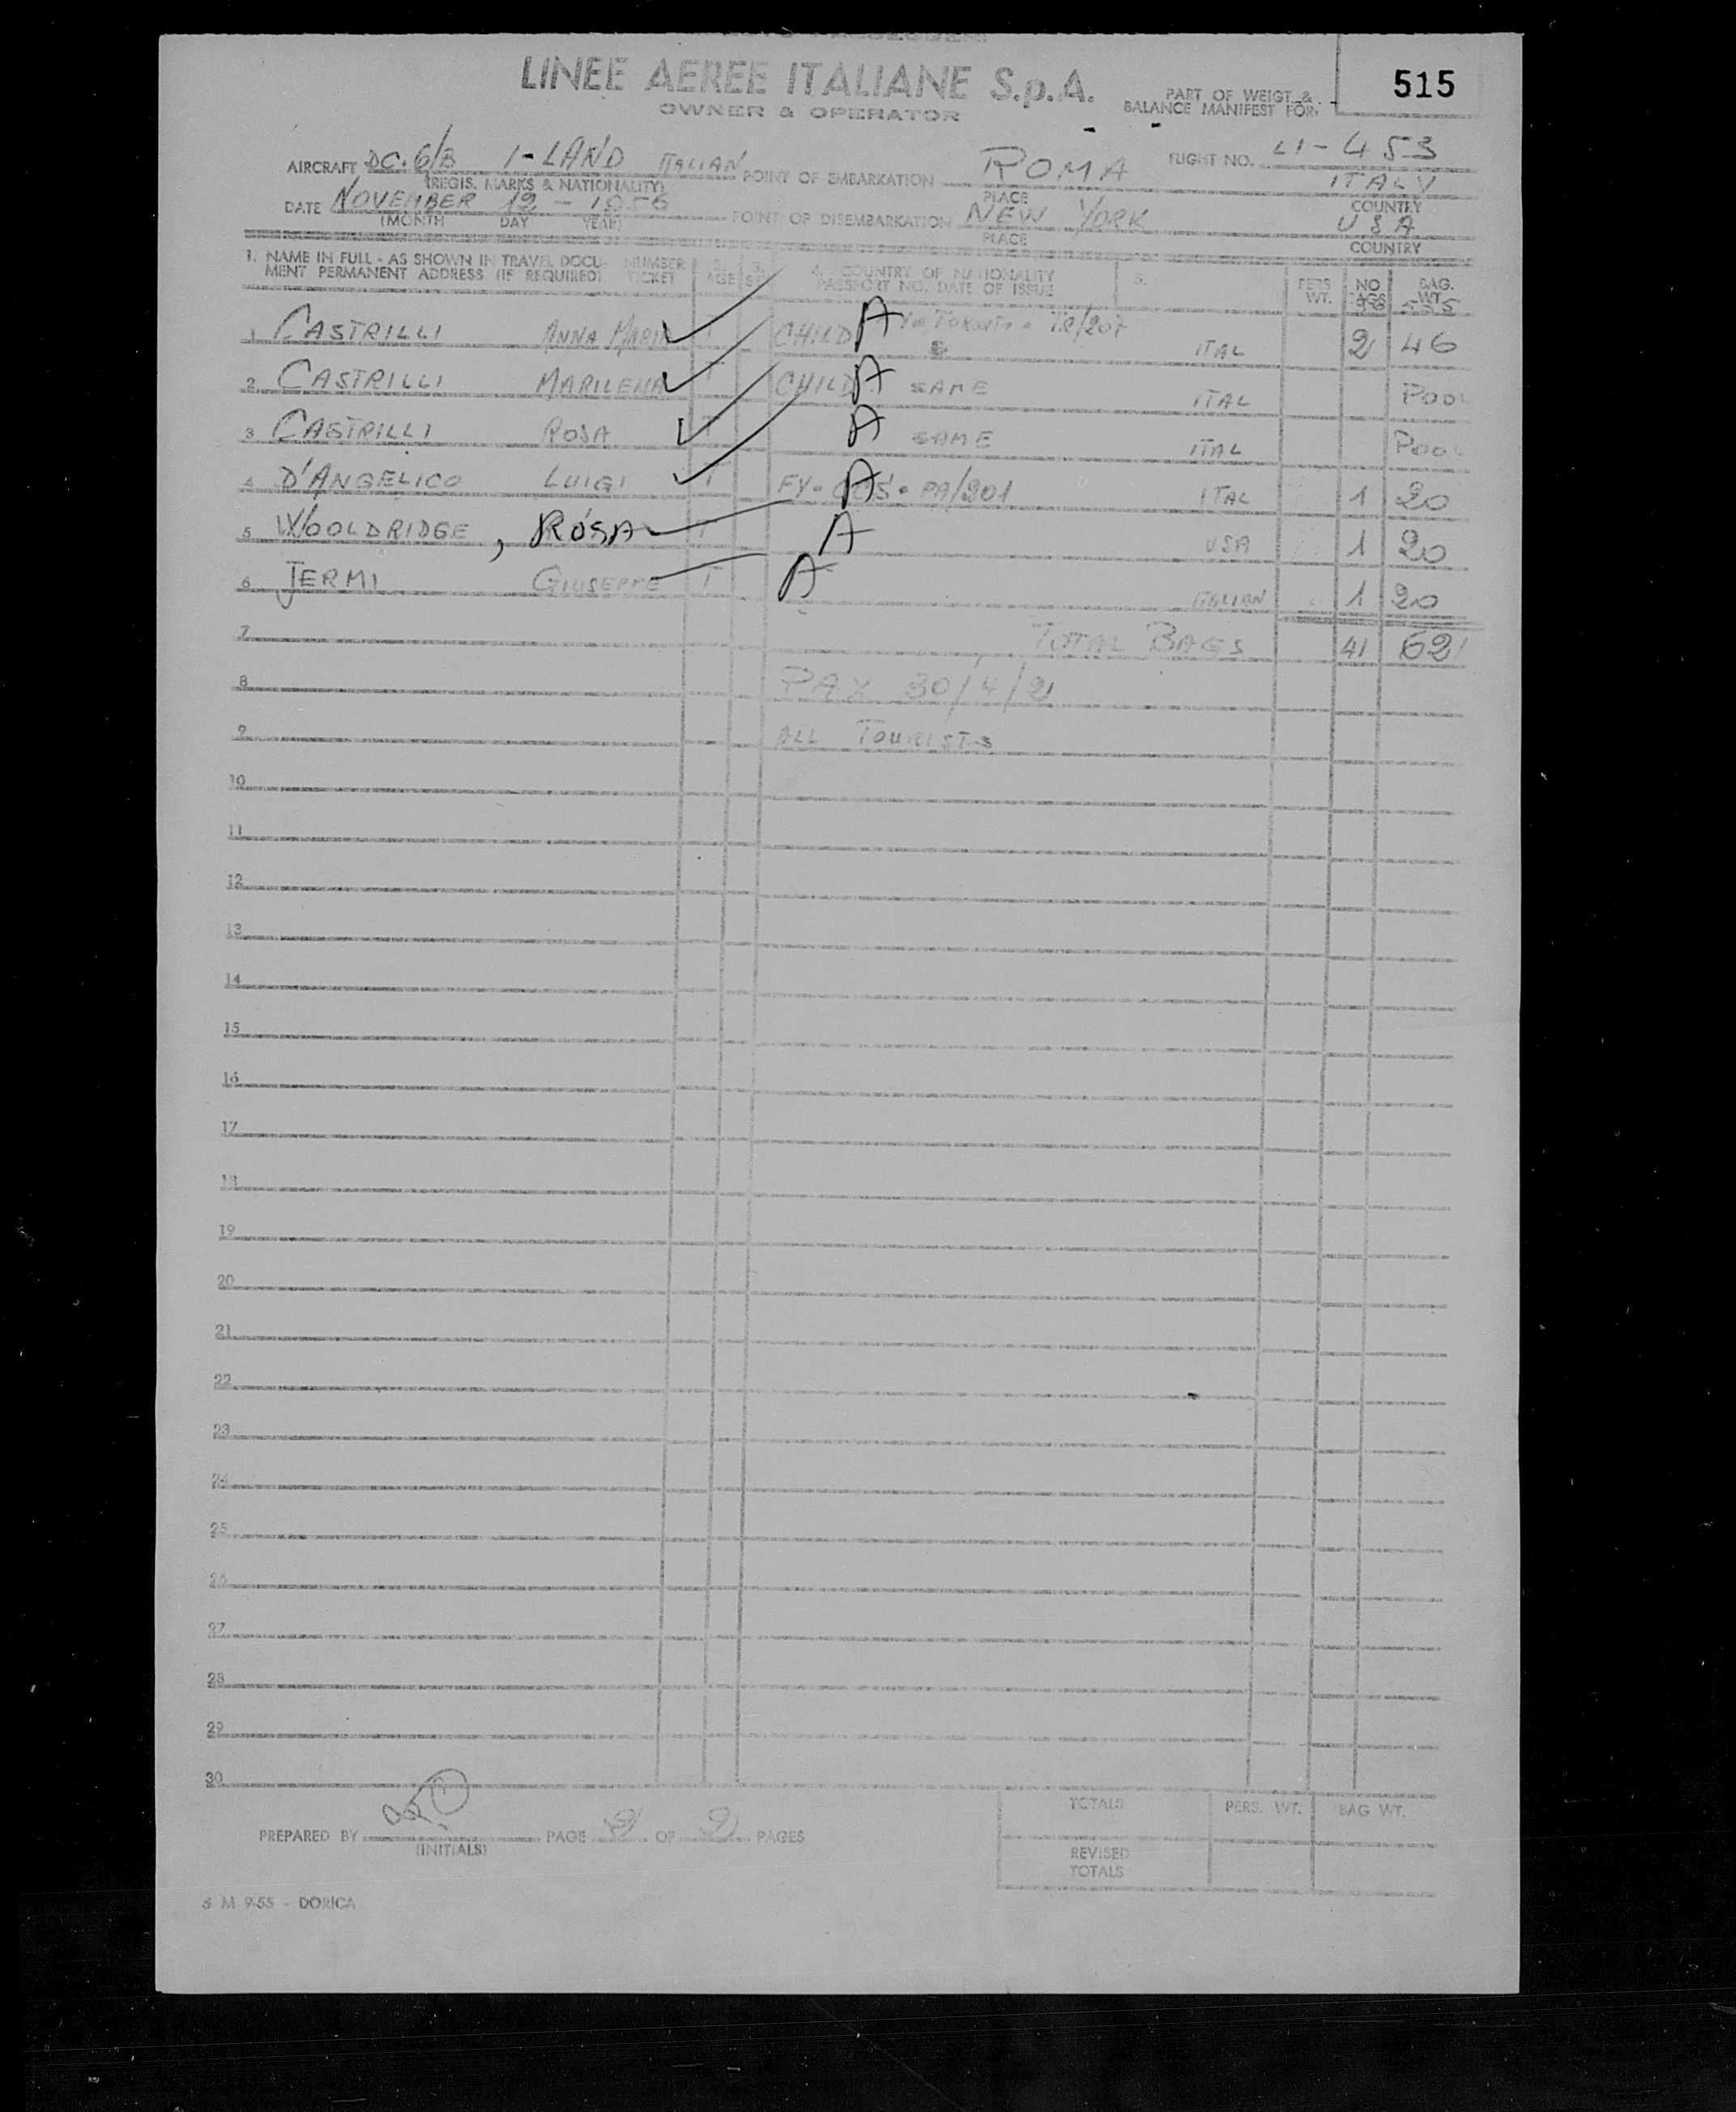 LINEE AEREE ITALIANE S.p.A.
OWNER & OPERATOR
PART OF WEIGT & BALANCE MANIFEST FOR:
515
AIRCRAFT DC.6/B I-LAND ITALIAN POINT OF EMBARKATION ROMA FLIGHT NO. LI-453
(REGIS. MARKS & NATIONALITY) PLACE ITALY
DATE NOVEMBER 12 - 1956 POINT OF DISEMBARKATION NEW YORK COUNTRY
(MONTH DAY YEAR) PLACE USA
COUNTRY
1. NAME IN FULL - AS SHOWN IN TRAVEL DOCU- NUMBER 2. 3. 4. COUNTRY OF NATIONALITY 5. PERS NO BAG.
MENT PERMANENT ADDRESS (IF REQUIRED) TICKET AGE PASSPORT NO. DATE OF ISSUE WT. BAGS WT.
1 CASTRILLI ANNA MARIA T CHILD A ITAL 2 46
2 CASTRILLI MARILENA T CHILD A SAME ITAL POOL
3 CASTRILLI ROSA T A SAME ITAL POOL
4 D'ANGELICO LUIGI T A PA/201 ITAL 1 20
5 WOOLDRIDGE, ROSA T A USA 1 20
6 JERMI GIUSEPPE T A ITALIAN 1 20
7 TOTAL BAGS 41 621
8 PAX 30/4/2
9 ALL TOURISTS
10
11
12
13
14
15
16
17
18
19
20
21
22
23
24
25
26
27
28
29
30
TOTALS PERS. WT. BAG WT.
PREPARED BY PAGE 2 OF 2 PAGES
(INITIALS)
REVISED
TOTALS
5 M 9-55 - DORICA